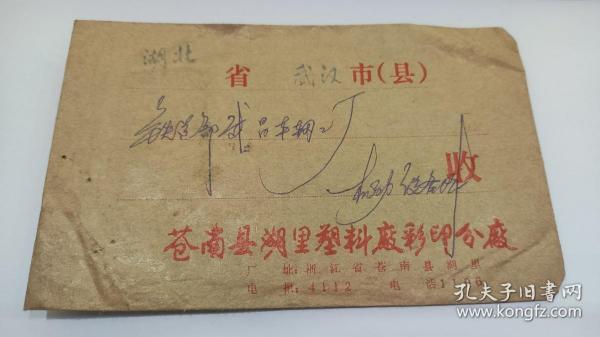 湖北省 武汉市(县)
铁道部武昌车辆厂
机动设备科 收
苍南县湖里塑料厰彩印分厰
厂 址:浙江省苍南县湖里
电 挂:4112 电 话:1
孔夫子旧书网
www.kongfz.com